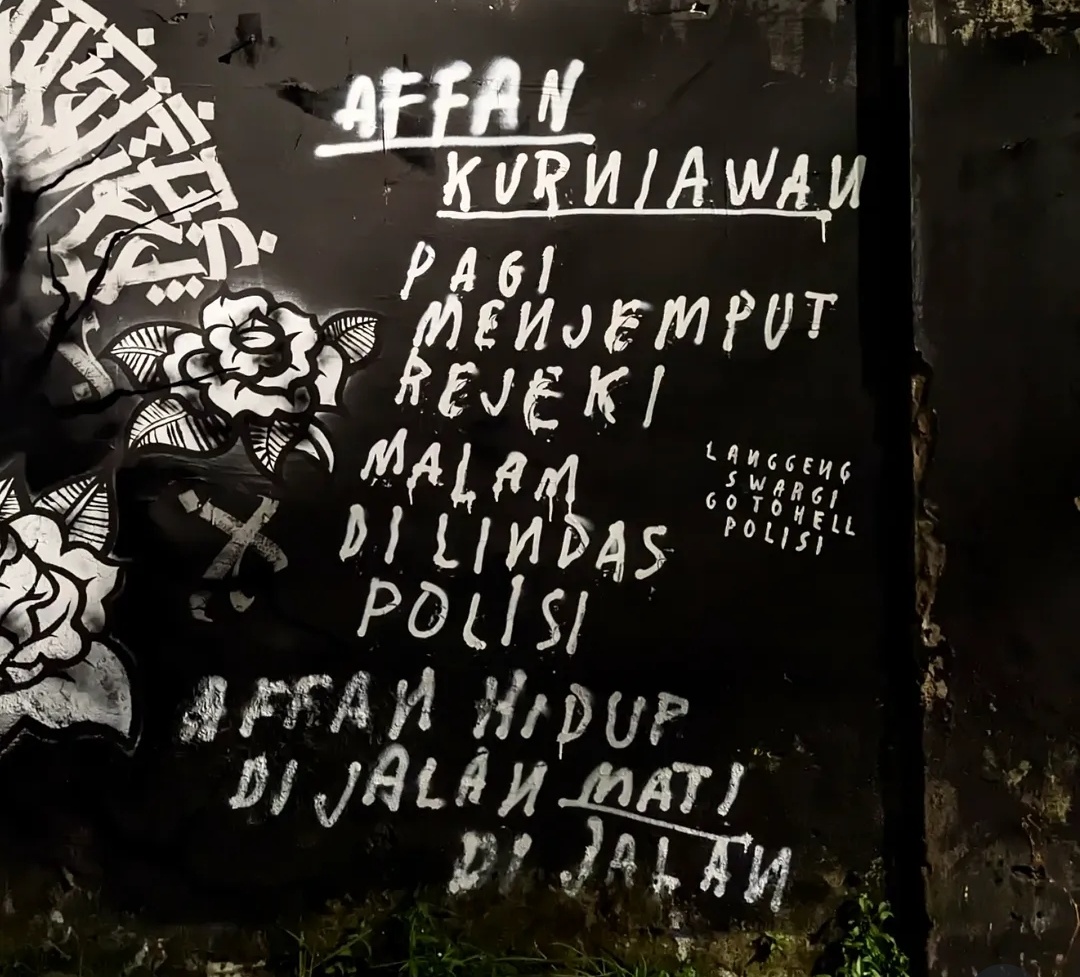 AFFAN
KURNIAWAN
PAGI
MENJEMPUT
REJEKI
MALAM
DI LINDAS
POLISI
AFFAN HIDUP
DI JALAN MATI
DI JALAN
LANGGENG
SWARGI
GO TO HELL
POLISI